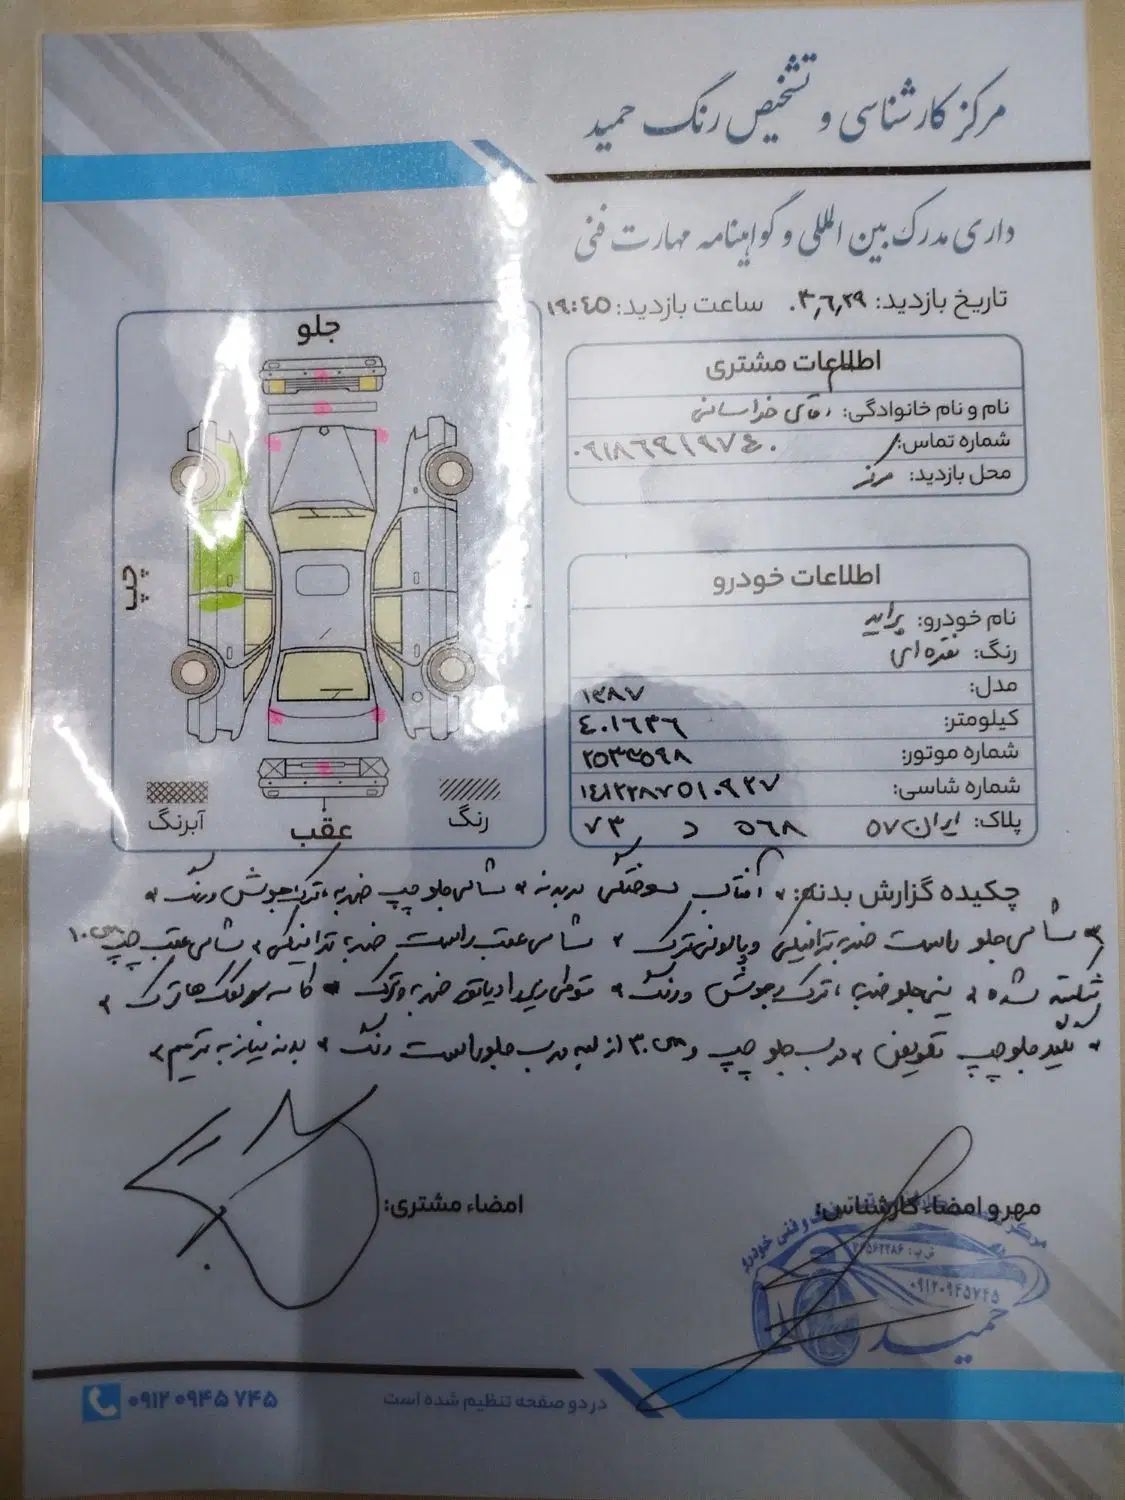 مرکز کارشناسی و تشخیص رنگ حمید
داری مدرک بین المللی و گواهینامه مهارت فنی
تاریخ بازدید: ۰۳,۶,۲۹ ساعت بازدید: ۱۹:۴۵
اطلاعات مشتری
نام و نام خانوادگی: آقای خراسانی
شماره تماس: ۰۹۱۸۶۹۱۹۷۴۰
محل بازدید: مرکز
اطلاعات خودرو
نام خودرو: پراید
رنگ: نقره ای
مدل: ۱۳۸۷
کیلومتر: ۴۰۱۶۳۶
شماره موتور: ۲۵۳۳۵۹۸
شماره شاسی: ۱۴۱۲۲۸۷۵۱۰۹۲۷
پلاک: ایران ۵۷ ۵۶۸ د ۷۳
جلو
چپ
عقب
آبرنگ
رنگ
چکیده گزارش بدنه: * آفتاب سوختگی بدنه * شاسی جلو چپ ضربه، ترک جوش و رنگ *
* شاسی جلو راست ضربه ترانیکی و پالونی ترک * شاسی عقب راست ضربه ترانیکی * شاسی عقب چپ ۱۰
شکسته شده * سینی جلو ضربه، ترک، جوش و رنگ * قوطی زیر رادیاتور ضربه و ترک * کاسه سر کمک ها ترک *
* گلگیر جلو چپ تعویض * درب جلو چپ و ۳۰ از لبه درب جلو راست رنگ * بدنه نیاز به ترمیم *
امضاء مشتری:
مهر و امضاء کارشناس:
۰۹۱۲۰۹۴۵۷۴۵
حمید
در دو صفحه تنظیم شده است
۰۹۱۲ ۰۹۴۵ ۷۴۵